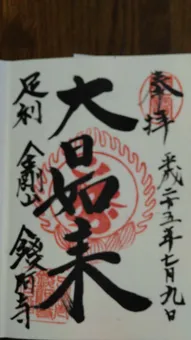 奉拝
平成二十五年七月九日
大日如来
足利
金剛山
鑁阿寺